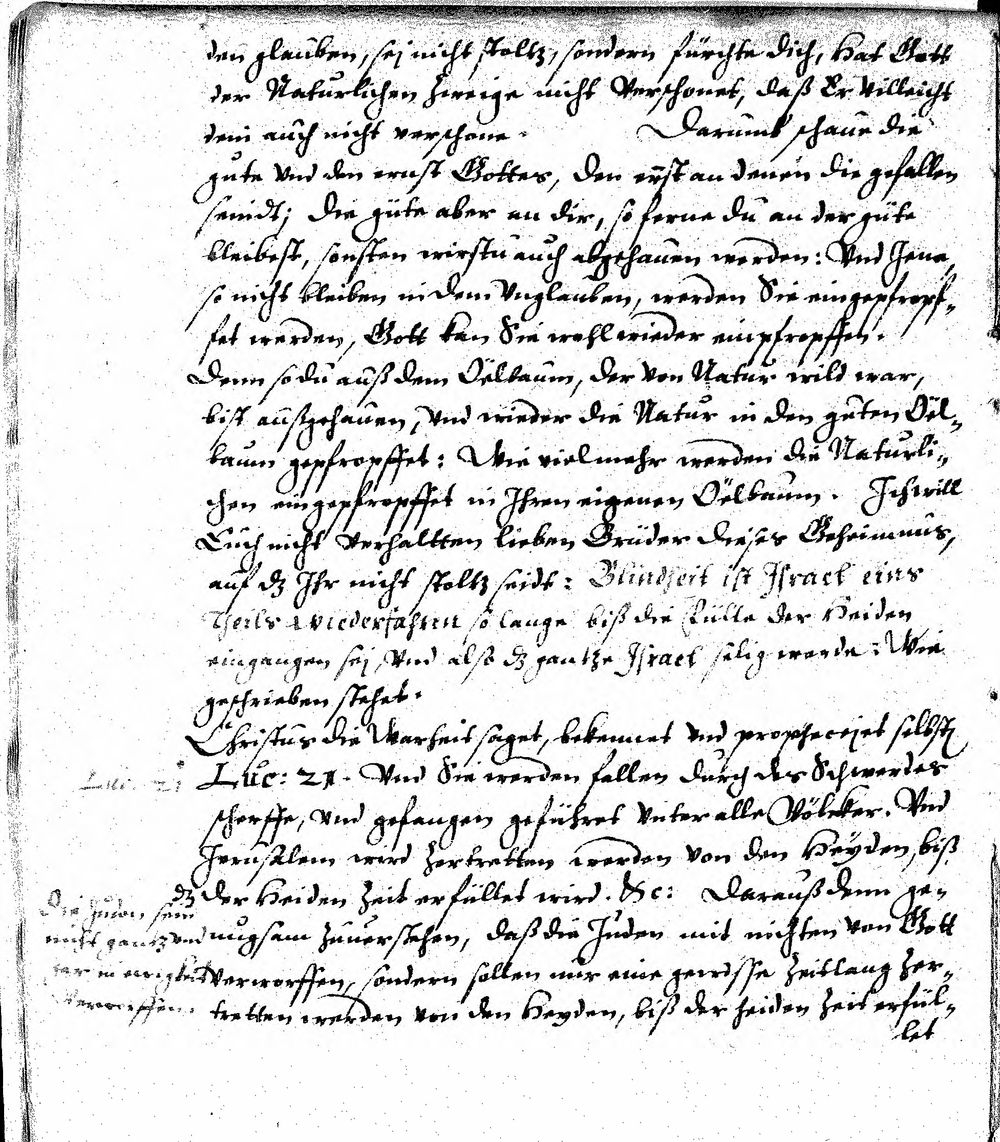 den glauben, sej nicht stoltz, sondern fürchte dich, Hat Gott
der Naturlichen Zweige nicht Verschonet, daß Er villeicht
dein auch nicht verschone. Darumb schaue die
gute Vnd den ernst Gottes, Den ernst an denen die gefallen
seindt; Die güte aber an dir, so ferne du an der güte
bleibest, sonsten wirstu auch abgehauen werden: Vnd Jene,
so nicht bleiben in dem Vnglauben, werden Sie eingepfropf-
fet werden, Gott kan Sie wohl wieder einpfropffen.
Denn so du auß dem Öelbaum, der von Natur wild war,
bist außgehauen, Vnd wieder die Natur in den guten Öel-
baum gepfropffet: Wie viel mehr werden die Naturli-
chen eingepfropffet in Ihren eigenen Öelbaum. Ich will
Euch nicht Verhaltten lieben Brüder dieses Geheimnus,
auf dz Ihr nicht stoltz seidt: Blindheit ist Israel eins
Theils wiederfahren so lange biß die Fülle der Heiden
eingangen sej, Vnd also dz gantze Israel selig werde: Wie
geschrieben stehet.
Christus die Warheit saget, bekennet Vnd propheceiet selbst
Luc: 21. Vnd Sie werden fallen durch des Schwerdes
scherffe, Vnd gefangen geführet Vnter alle Völcker. Vnd
Jerusalem wird zertretten werden von den Heyden, biß
dz der Heiden Zeit erfüllet wird. &c: Darauß denn ge-
nugsam zuuerstehen, daß die Juden mit nichten von Gott
verworffen, sondern sollen nur eine gewisse Zeitlang zer-
tretten werden von den Heyden, biß der heiden Zeit erfül-
let
Luc. 21
Die Juden sein
nicht gantz vnd
gar in ewigkeit
verworffen.